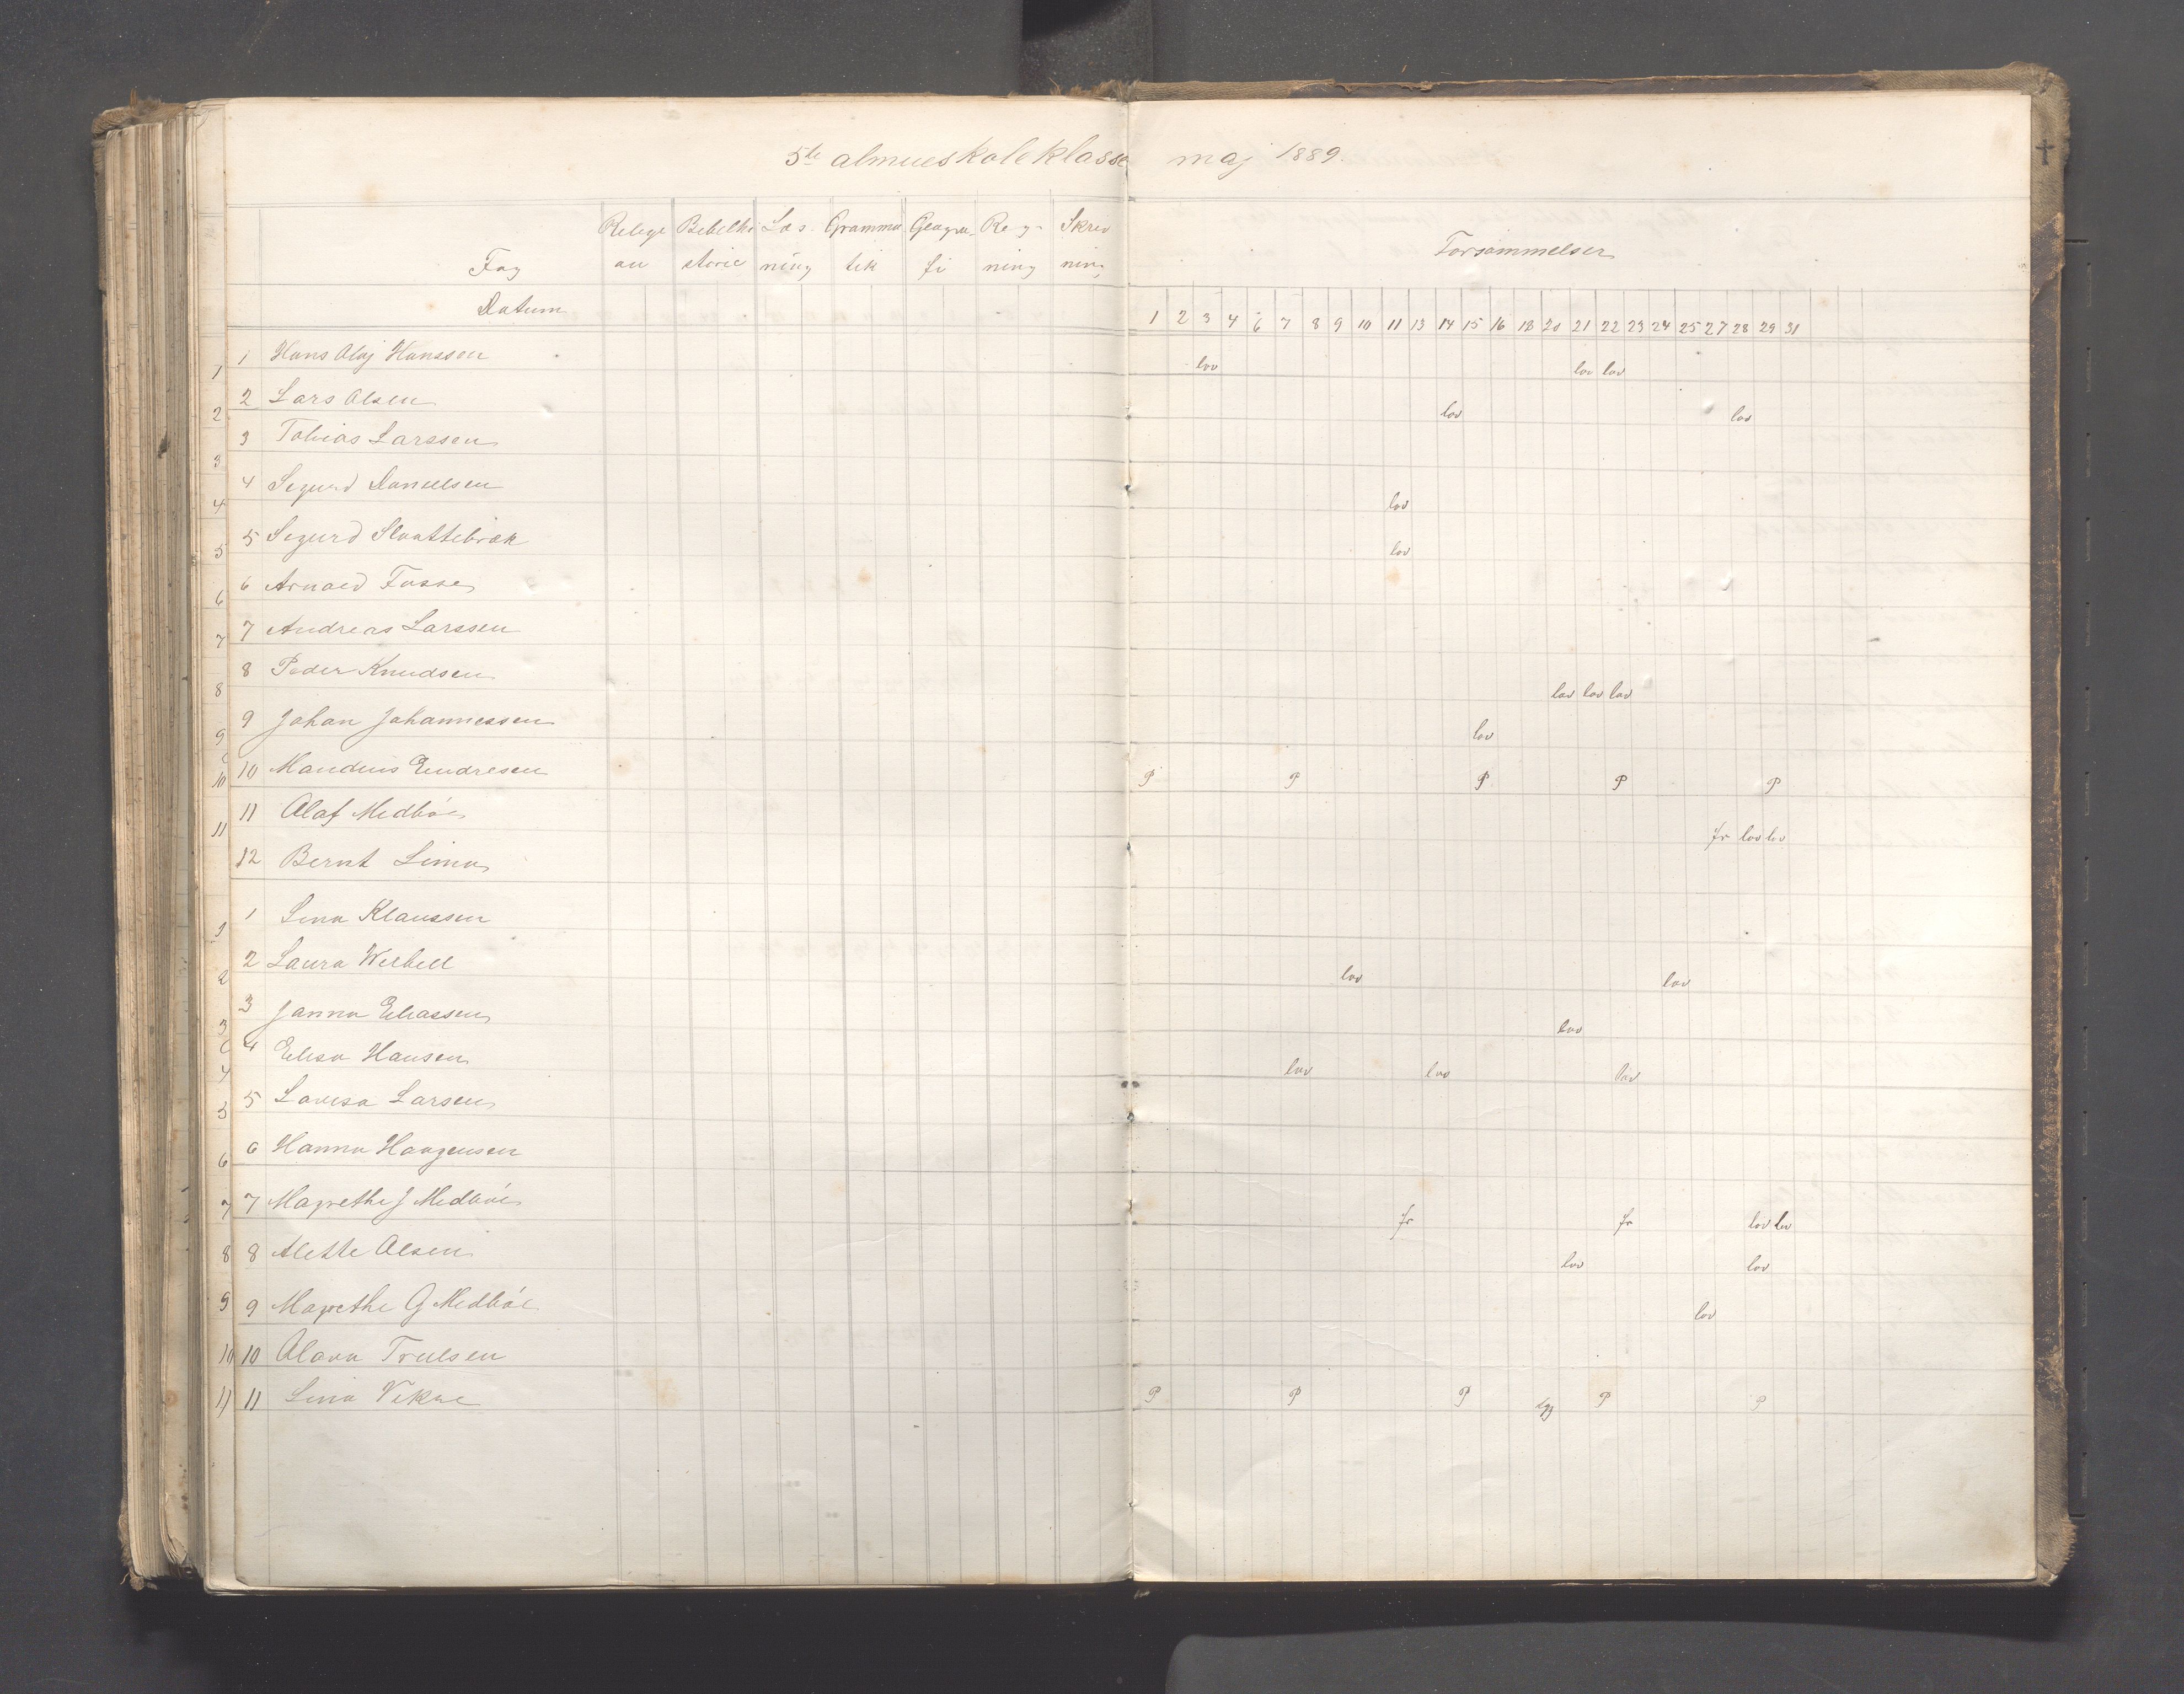 5te almueskoleklasse maj 1889.
Fag Religi on Bibelhi storie Læs- ning Gramma tik Geogra fi Reg- ning Skriv ning Forsømmelser
Datum 1 2 3 4 6 7 8 9 10 11 13 14 15 16 18 20 21 22 23 24 25 27 28 29 31
1 1 Hans Olaj Hanssen lov lov lov
2 2 Lars Olsen lov lov
3 3 Tobias Larssen
4 4 Sigurd Danielsen lov
5 5 Sigurd Slaattebræk lov
6 6 Arnold Fosse
7 7 Andreas Larssen
8 8 Peder Knudsen lov lov lov
9 9 Johan Johannessen lov
10 10 Mandius Endresen P P P P P
11 11 Olaf Medbøe fr lov lov
12 Bernt Lima
1 1 Lina Klaussen
2 2 Laura Weibell lov lov
3 3 Janna Eliassen lov
4 4 Elisa Hansen lov lov lov
5 5 Lovisa Larsen
6 6 Hanna Haagensen
7 7 Magrethe J Medbøe fr fr lov lov
8 8 Alette Olsen lov lov
9 9 Magrethe G Medbøe lov
10 10 Olava Trulsen
11 11 Lina Vikse P P P P P